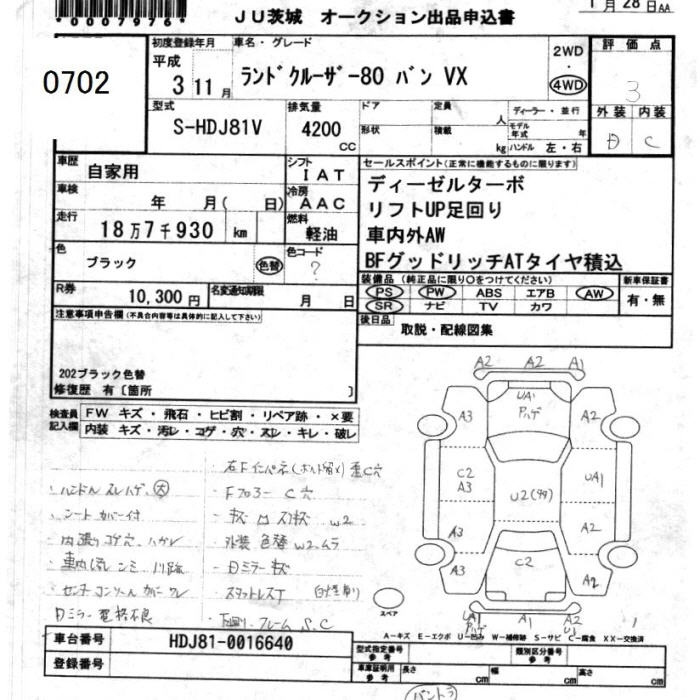 *0007976*
JU茨城 オークション出品申込書
1月28日AA
0702
初度登録年月
平成
3 11月
車名・グレード
ランドクルーザー80 バン VX
2WD
・
4WD
評価点
3
外装 内装
D C
型式
S-HDJ81V
排気量
4200
CC
ドア
形状
定員
人
積載
kg
ディーラー・並行
モデル年式 年
ハンドル 左・右
車歴
自家用
シフト
IAT
車検
年 月( 日)
冷房
AAC
走行
18万7千930 km
燃料
軽油
色
ブラック
色替
色コード
?
R券
10,300円
名変通知期限
月 日
セールスポイント(正常に機能するものに限ります)
ディーゼルターボ
リフトUP足回り
車内外AW
BFグッドリッチATタイヤ積込
装備品(純正品に限り○をつけてください)
PS PW ABS エアB AW
SR ナビ TV カワ
新車保証書
有・無
後日品
取説・配線図集
注意事項申告欄(不具合内容等は具体的に記入して下さい)
202ブラック色替
修復歴 有〔箇所 〕
検査員記入欄
FW キズ・飛石・ヒビ割・リペア跡・×要
内装 キズ・汚レ・コゲ・穴・スレ・キレ・破レ
・ハンドル スレハゲ 大
・シートカバー付
・Fフロアー C穴
・外装 色替 W2ムラ
・Dミラー キズ
スタットレスT
・下回り・フレーム S.C
A2 A2 A1
UA1
アハゲ
A3 A2
C2
A3
UA1
U2(99)
A3 A2
C2
A3 A2
A1 A1 A2
スペア
A-キズ E-エクボ U-凹み W-補修跡 S-サビ C-腐食 XX-交換済
車台番号
HDJ81-0016640
登録番号
型式指定番号
参考
類別区分番号
参考
車庫証明用
参考
長さ cm
幅 cm
高さ cm